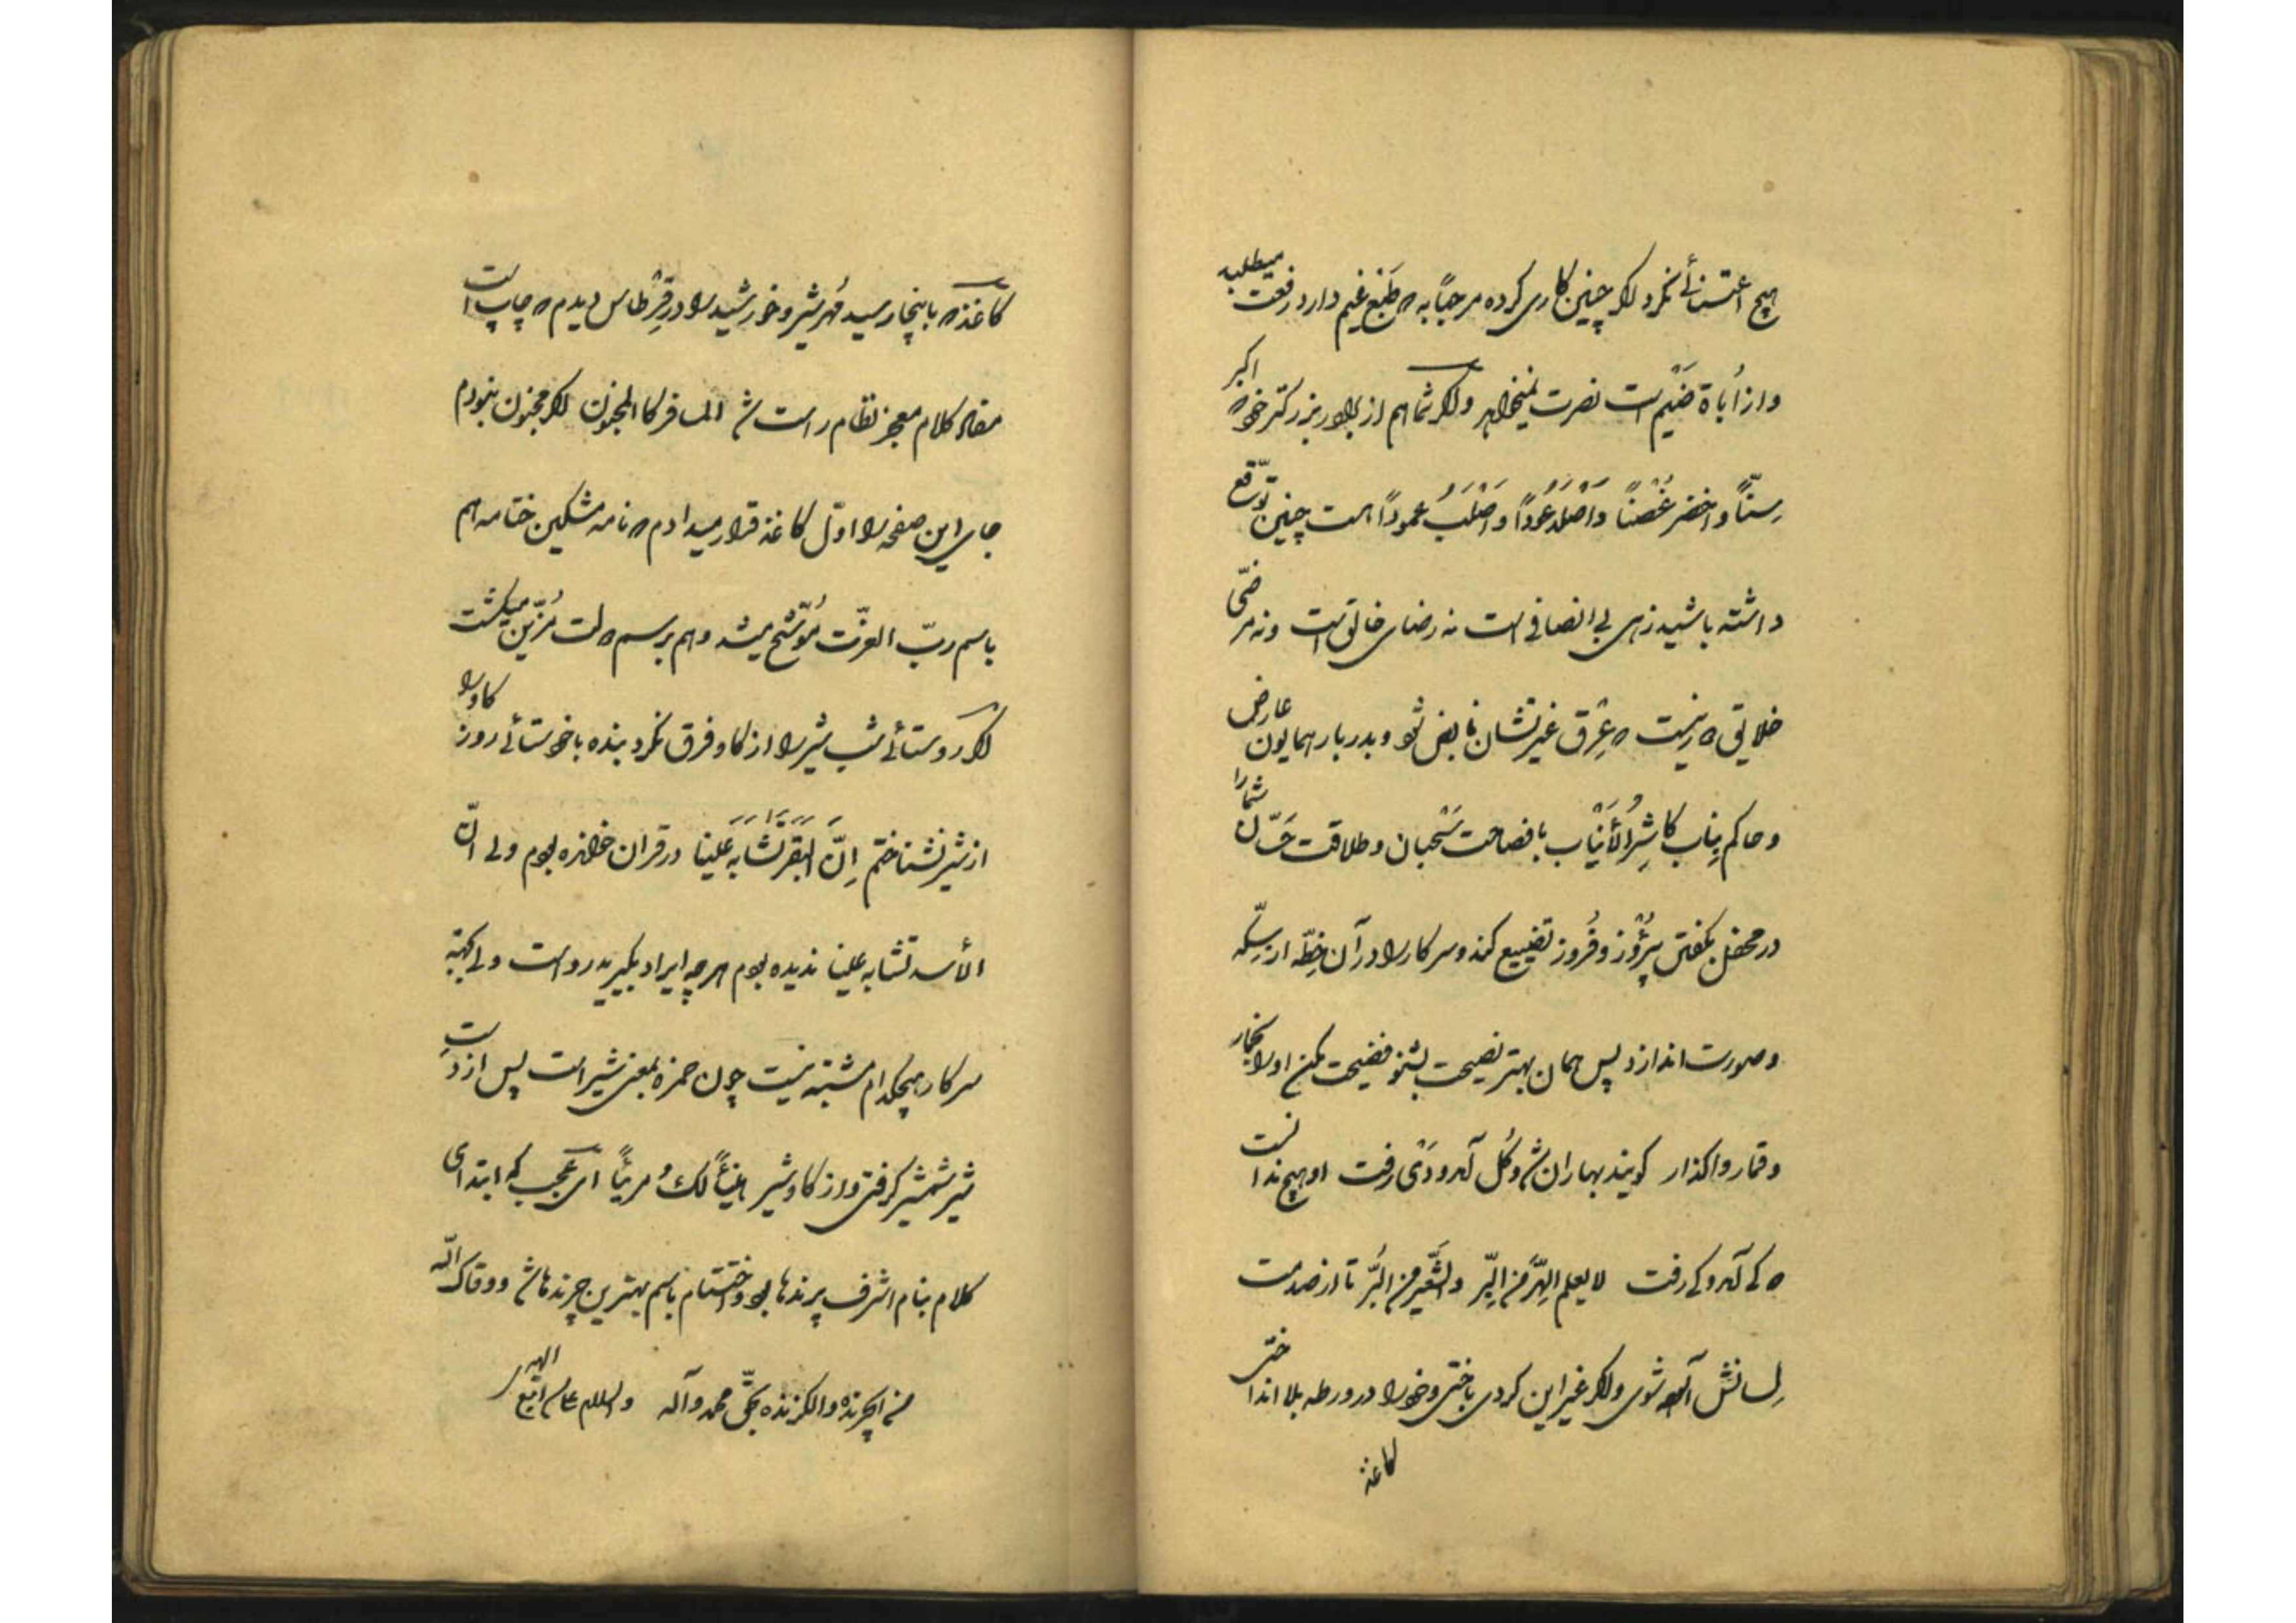 هیچ اعتنائی نکرد اگر چنین کاری کرده مرحبا به که طبع غیم دارد رفعت میطلبد
و از اُباة ضَیْم است نصرت نمیخواهد و اگر شما هم از برادر بزرگتر خود که اکبر
سِنّاً و اخضر غُصْناً وَاَصْلَدُ عُوداً و اَصْلَبُ عموداً است چنین توقّع
داشته باشید زهی بی انصافی است نه رضای خالق است و نه مرضّی
خلایق که نیست که عِرْق غیرتشان نابض شود و بدربار همایون عارض
و حاکم بِناب کاشِرُ الأَنْیاب با فصاحت سَحْبان و طلاقت حَسّان شما را
در محفل بگفتن پُژوز و فُروز تضییع کند و سرکار را در آن خِطّه از سِکّه
و صورت اندازد پس همان بهتر نصیحت بشنو فضیحت مکن او را بگذار
و قمار واگذار گویند بهاران شد و گل آمد و دَی رفت او هیچ ندانست
که کی آمد و کی رفت لا یعلم الهِرَّ مِن البِرّ و الشَّعیر من البُرّ تا از صدمت
لِسانش آسوده شوی و اگر غیر این کردی باختی و خود را در ورطه بلا انداختی
کاغذ
کاغذ که بانیجا رسید مُهر شیر و خورشید را در قِرْطاس دیدم که چاپ است
مفاد کلام معجز نظام راست شد المسافر کالمجنون اگر مجنون نبودم
جای این صفحه را اوّل کاغذ قرار میدادم که نامه مشکین ختامه هم
باسم ربّ العزّت مُوَشَّح میشد و هم برسم دولت مُزَیّن میگشت
اگر روستائی شب شیر را از گاو فرق نکرد بنده باخوستائی روز گاو را
از شیر نشناختم اِنَّ البَقَرَ تَشَابَهَ عَلَینا در قران خوانده بودم ولی انّ
الأسد تشابه علینا ندیده بودم هر چه ایراد بگیرید رواست ولی البته
سرکار هیچکدام مشتبه نیست چون حمزه بمعنی شیر است پس از دست
شیر شمشیر گرفتی و از گاو شیر هنیئاً لَکَ مریئاً ای عجب که ابتدای
کلام بنام اشرف پرندها بود و اختتام باسم بهترین چرندها شد و وقاک الله
من الچرنده و الگزنده بحقّ محمد و آله و السلام علی من اتبع الهدی